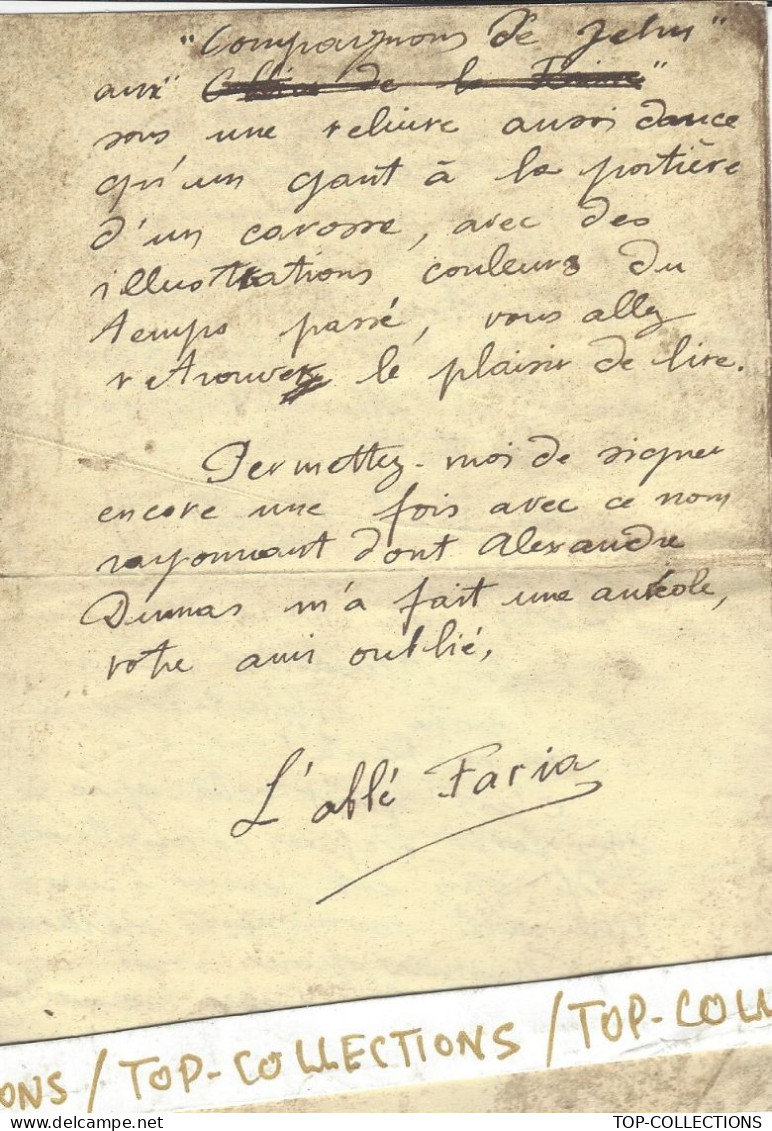 "Compagnons de Jehu"
aux "Collier de la Reine"
sous une reliure aussi douce
qu'un gant à la portière
d'un carosse, avec des
illustrations couleurs du
temps passé, vous allez
retrouver le plaisir de lire.
Permettez-moi de signer
encore une fois avec ce nom
rayonnant dont Alexandre
Dumas m'a fait une auréole,
votre ami oublié,
L'abbé Faria
ONS / TOP-COLLECTIONS / TOP-COLL
TOP-COLLECTIONS